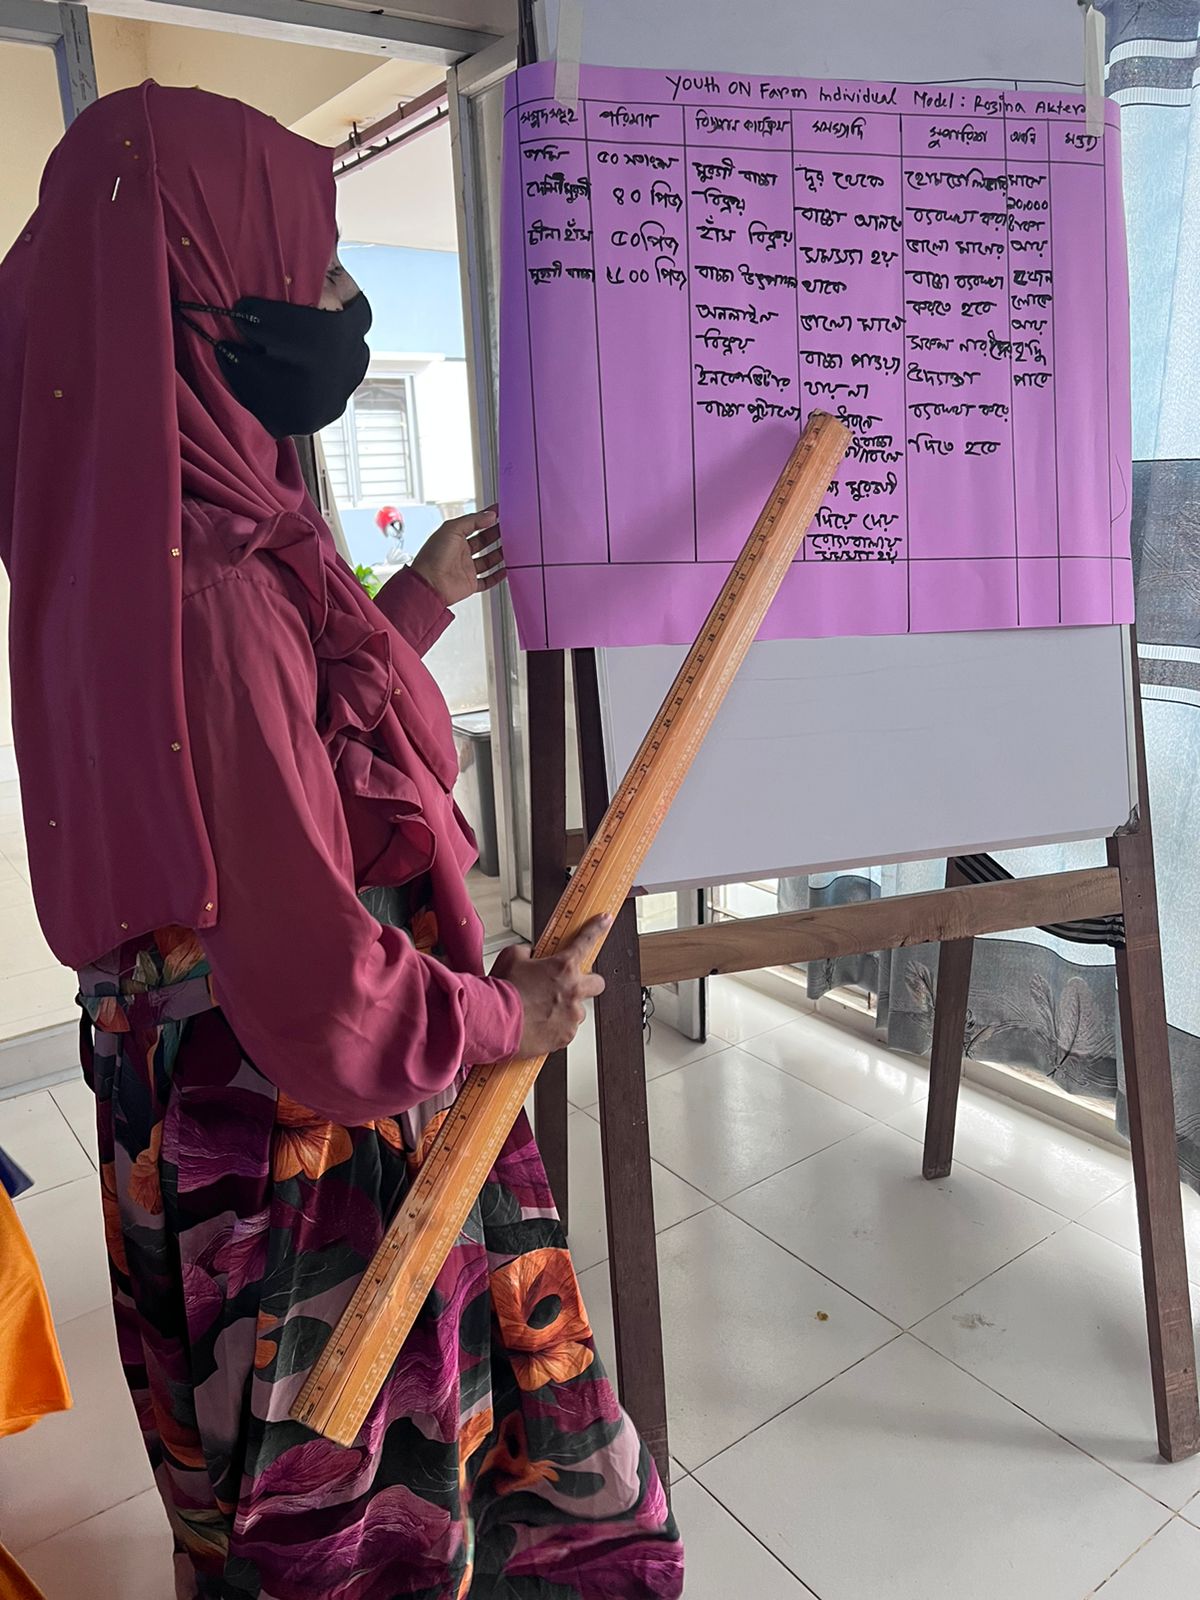 Youth ON Farm Individual Model : Rozina Akter
সম্পদসমূহ পরিমাণ বিদ্যমান কার্যক্রম সমস্যাদি সুপারিশ অর্জন মন্তব্য
জমি ৫০ শতাংশ মুরগী বাচ্চা দূর থেকে হোম ডেলিভারি মাসে
দেশী মুরগী ৪০ পিচ বিক্রয় বাচ্চা আনতে ব্যবস্থা করা ২০,০০০ টাকা
চীনা হাঁস ৫০ পিচ হাঁস বিক্রয় সমস্যা হয় ভালো মানের আয়
মুরগী বাচ্চা ৫০০ পিচ বাচ্চা উৎপাদন থাকে বাচ্চা ব্যবস্থা
অনলাইন ভালো মানে করতে হবে লোকে
বিক্রয় বাচ্চা পাওয়া সকল নারী আয় বৃদ্ধি
ইনকোভিটার যায় না উদ্যোক্তা পাবে
বাচ্চা পুটানো ব্যবস্থা করে
বাচ্চা দিতে হবে
মুরগী
দিয়ে দেয়
সমস্যা হয়